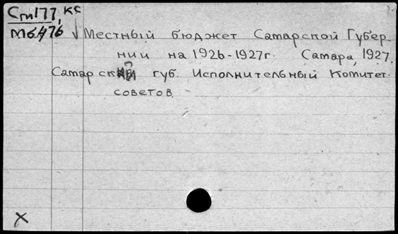 Сты177, КС
М6476 Местный бюджет Самарской Губер-
нии на 1926-1927г. Самара, 1927.
Самарский губ. Исполнительный Комитет
советов
X